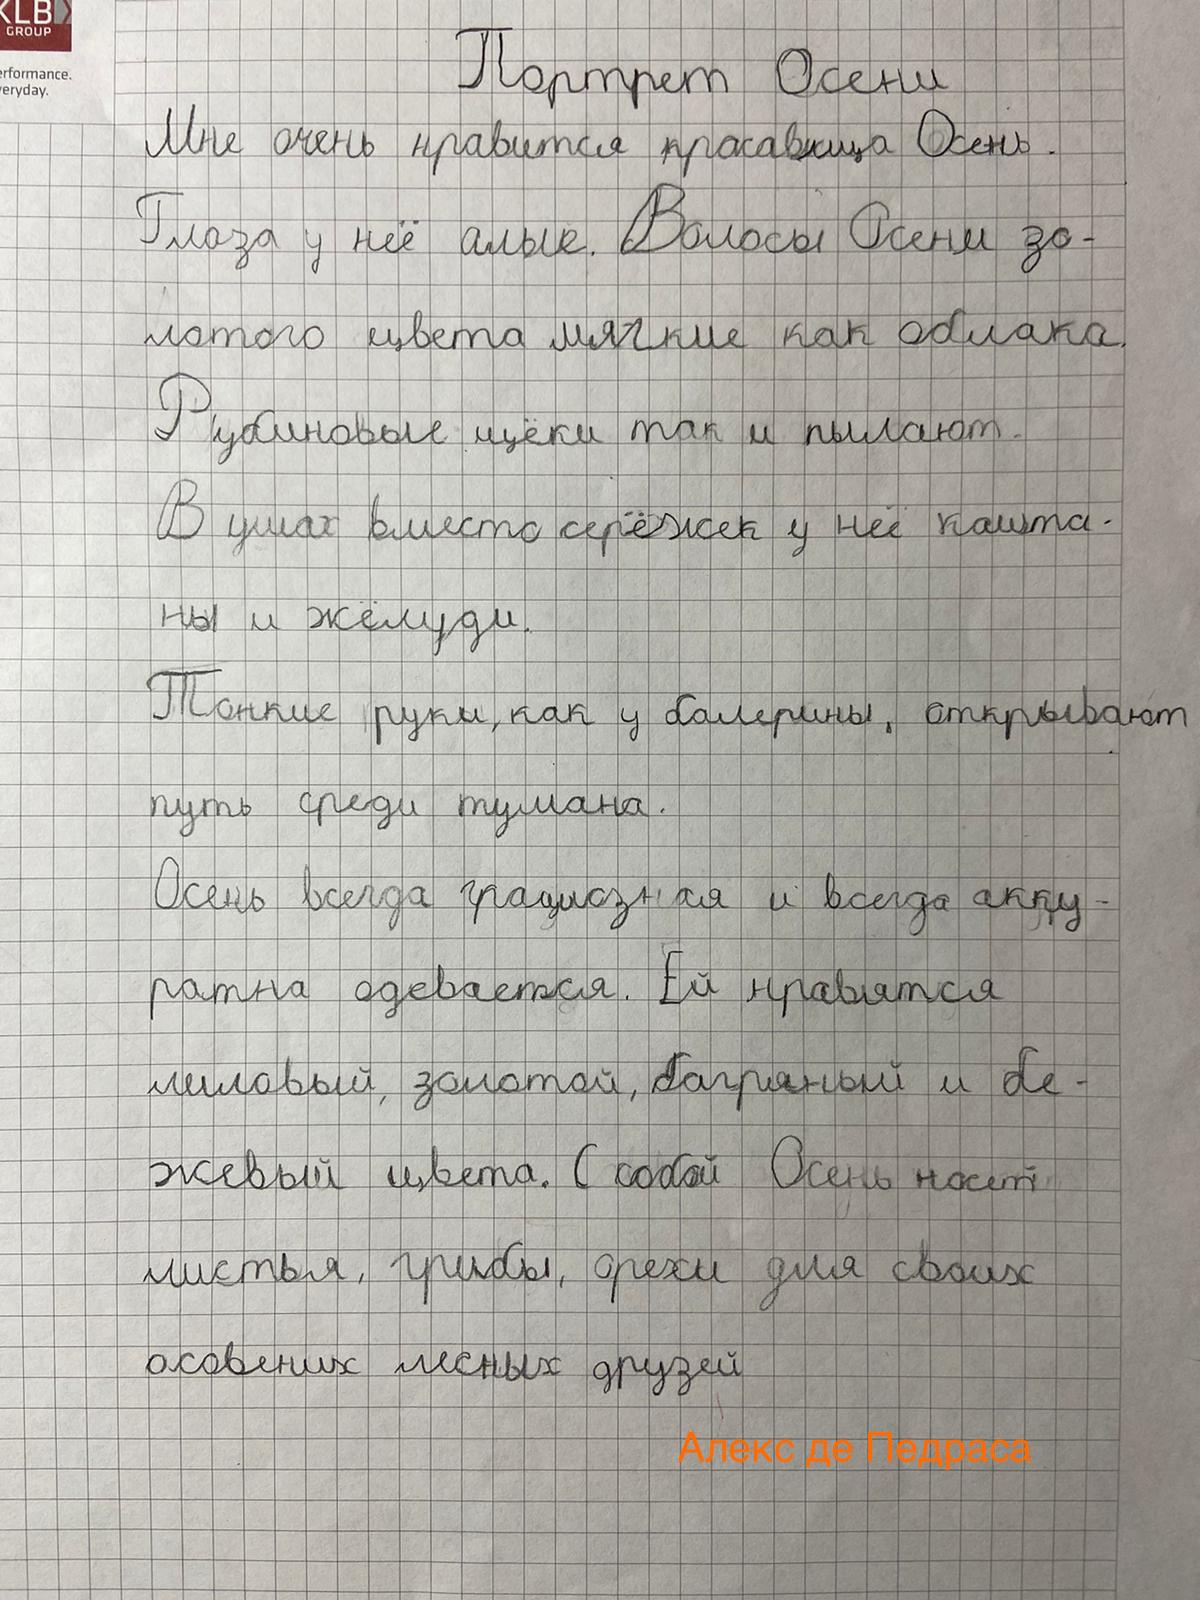 KLB
GROUP
erformance.
veryday.
Портрет Осени
Мне очень нравится красавица Осень.
Глаза у неё алые. Волосы Осени зо-
лотого цвета мягкие как облака.
Рубиновые щёки так и пылают.
В ушах вместо серёжек у неё кашта-
ны и жёлуди.
Тонкие руки, как у балерины, открывают
путь среди тумана.
Осень всегда грациозная и всегда акку-
ратна одевается. Ей нравятся
лиловый, золотой, багряный и бе-
жевый цвета. С собой Осень носит
листья, грибы, орехи для своих
осовених лесных друзей
Алекс де Педраса